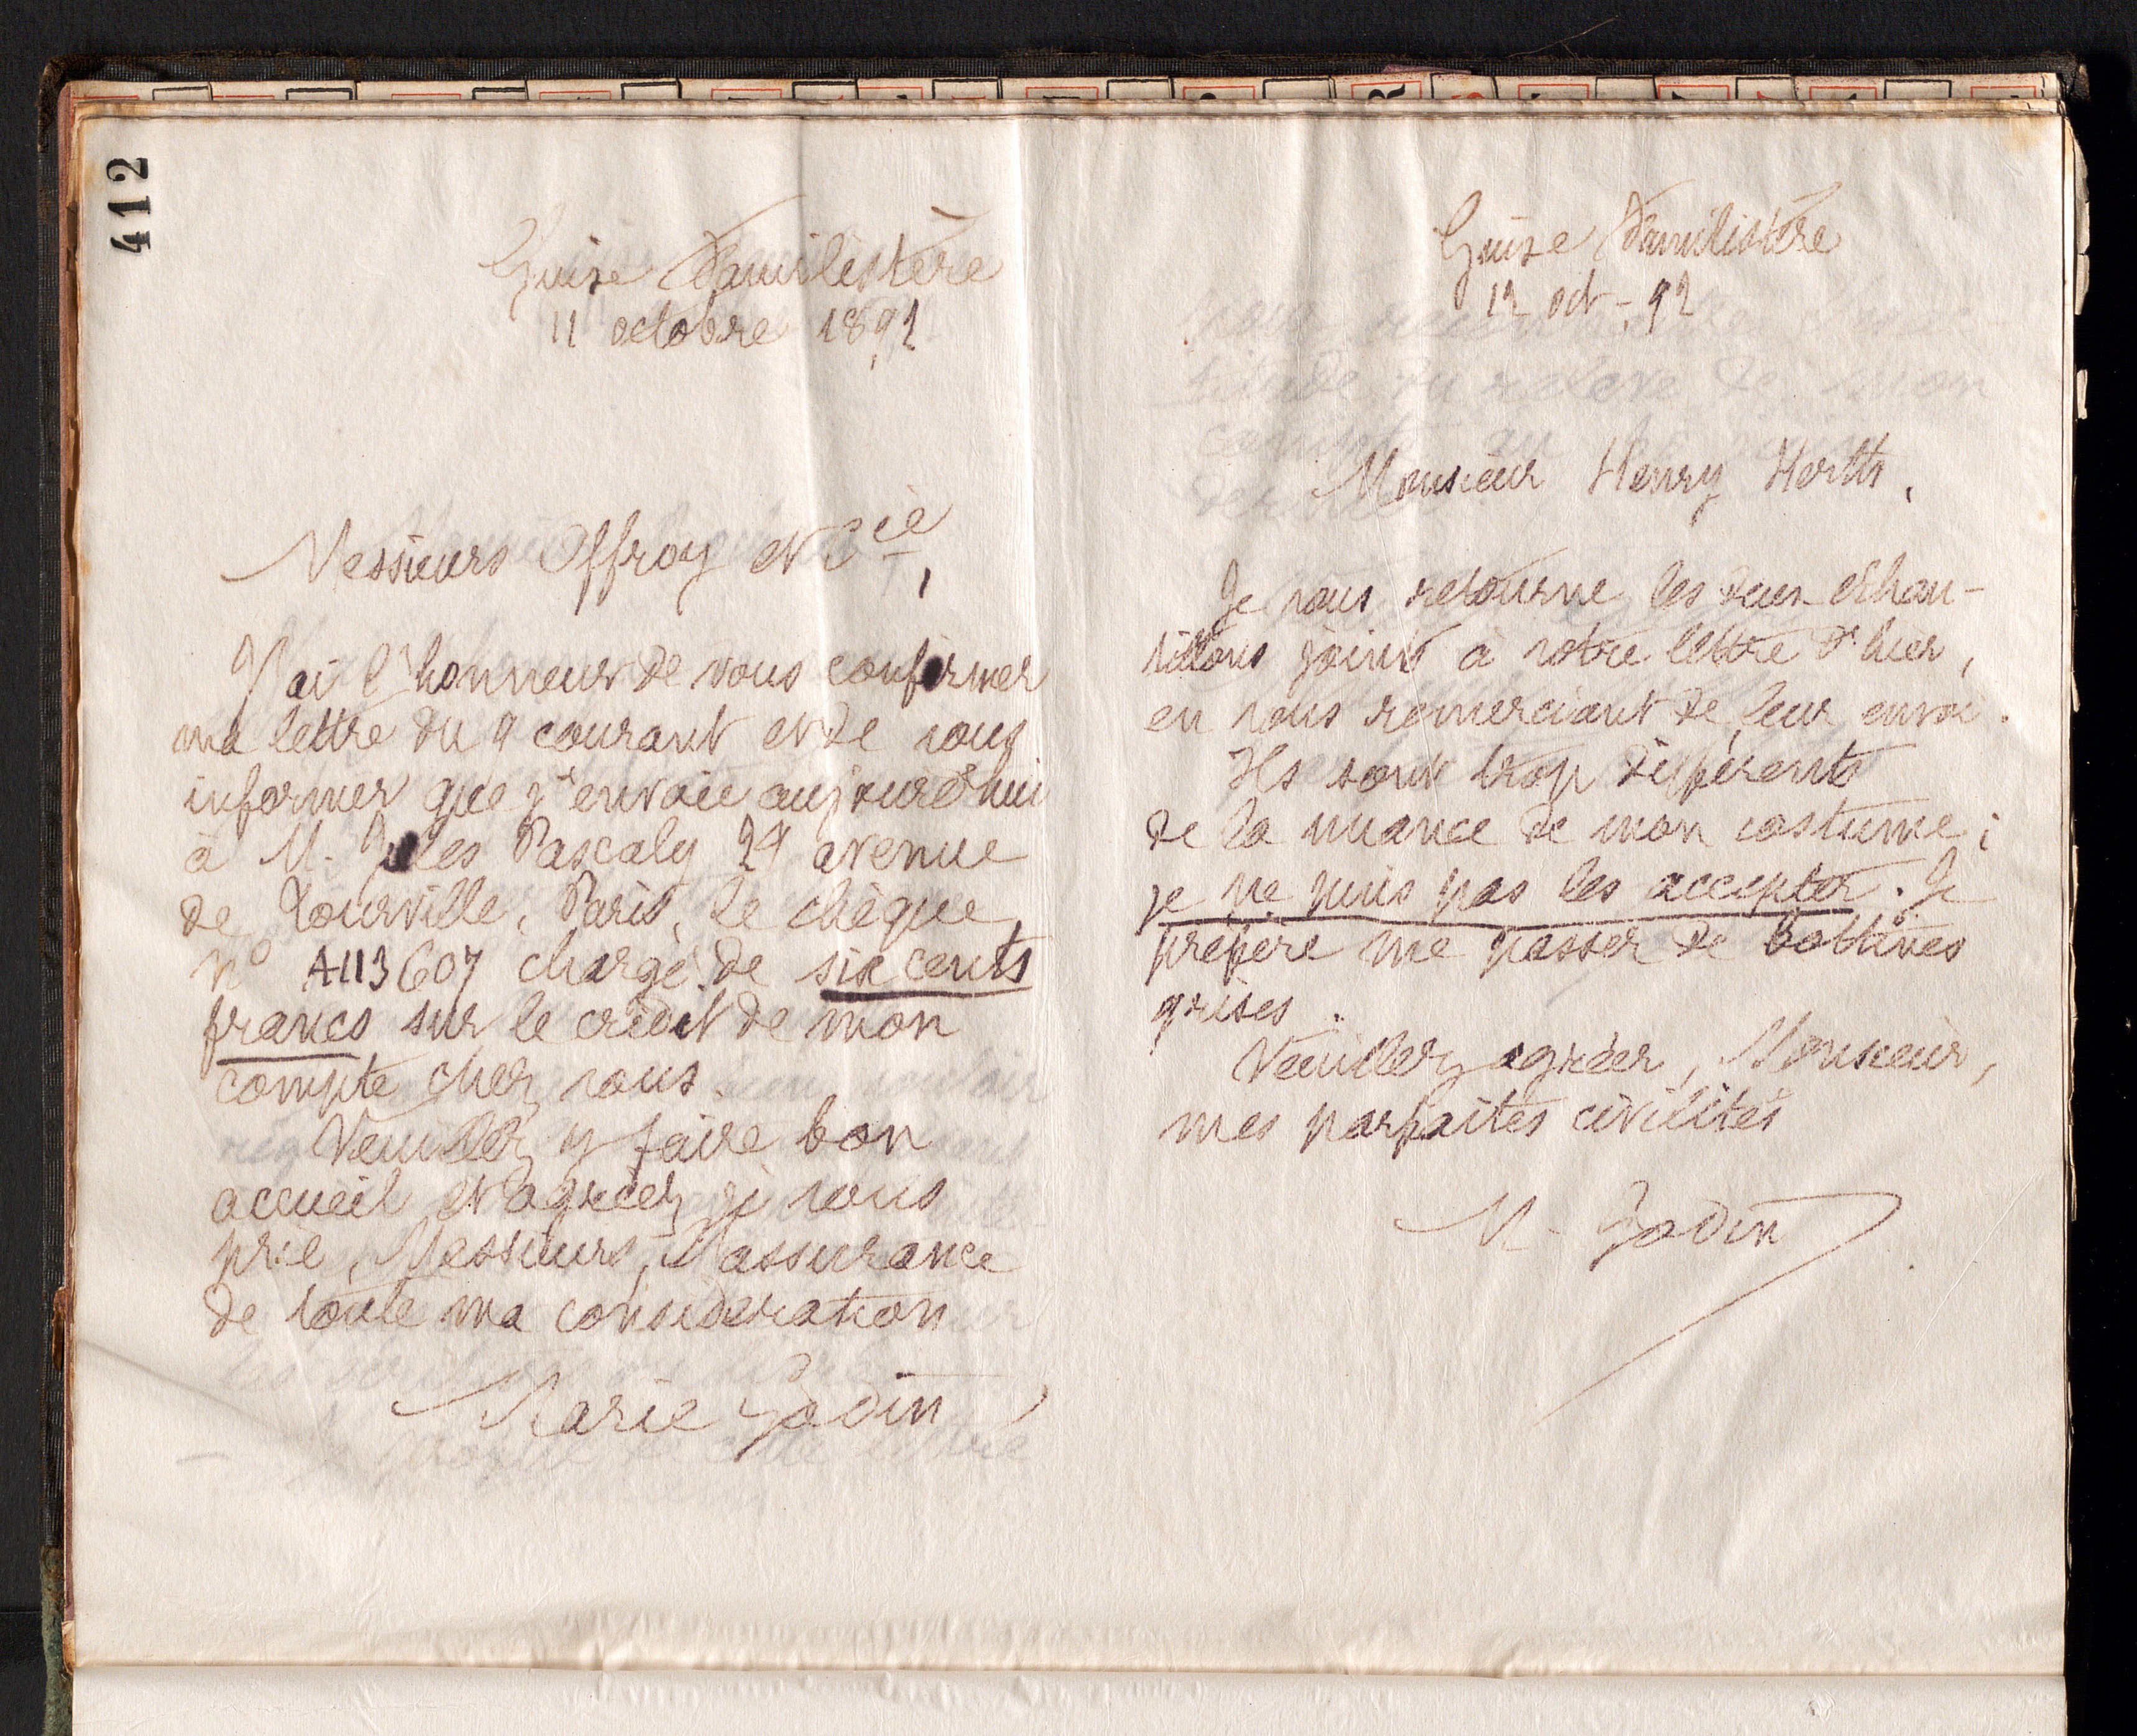 412
Guise Familistère
11 octobre 1892
Messieurs Offroy et Cie,
J'ai l'honneur de vous confirmer
ma lettre du 9 courant et de vous
informer que j'envoie aujourd'hui
à M. Jules Pascaly 29 avenue
de Tourville, Paris, le chèque
no A113607 chargé de six cents
francs sur le crédit de mon
compte chez vous.
Veuillez y faire bon
accueil et agréez, je vous
prie, Messieurs, l'assurance
de toute ma considération
Marie Godin
Guise Familistère
12 oct. 92
Monsieur Henry Herth,
Je vous retourne les deux échan-
tillons joints à votre lettre d'hier,
en vous remerciant de leur envoi.
Ils sont trop différents
de la nuance de mon costume ;
je ne puis pas les accepter. Je
préfère me passer de bottines
grises.
Veuillez agréer, Monsieur,
mes parfaites civilités
M. Godin